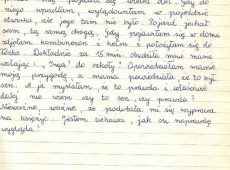 wpadłam, wyglądałam w pojeździe
słonka, ale jego tam nie było. Pojazd jechał
sam, tą samą drogą. Gdy pojawiłam się w domu
zdjęłam kombinezon i hełm i położyłam się do
łóżka. Dokładnie za 15 min. obudziła mnie mama
wołając: „ Inga! do szkoły! Opowiedziałam mamie
moją przygodę, a mama powiedziała że to był
sen. A ja myślałam, że to prawda i właściwie
dalej nie wiem czy to sen, czy prawda?
Nieważne, ważne, że podobała mi się wyprawa
na księżyc. Jestem ciekawa, jak on naprawdę
wygląda?